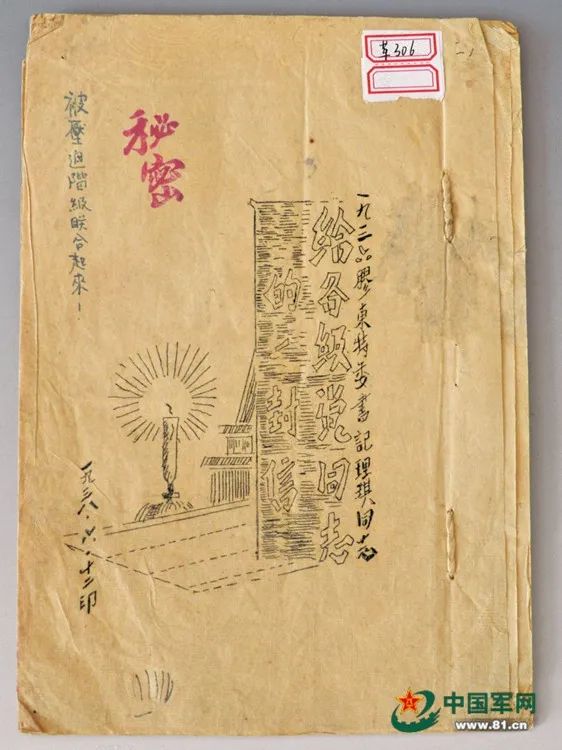 革306
一九三六膠東特委書記理琪同志
給各级党同志
的一封信
秘密
被壓迫階級联合起來！
一九三八·六·十二印
中国军网
www.81.cn